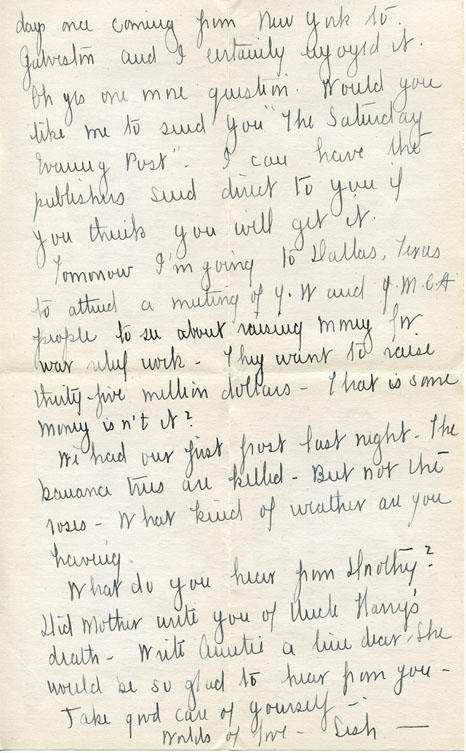 days once coming from New York to
Galveston and I certainly enjoyed it.
Oh yes one more question. Would you
like me to send you "The Saturday
Evening Post". I can have the
publishers send direct to you if
you think you will get it.
Tomorrow I'm going to Dallas, Texas
to attend a meeting of Y.W and Y.M.C.A
people to see about raising money for
war relief work - They want to raise
thirty-five million dollars - That is some
money isn't it?
We had our first frost last night - The
banana trees are killed - But not the
roses - What kind of weather are you
having.
What do you hear from Dorothy?
Did Mother write you of Uncle Harry's
death - Write Auntie a line dear. She
would be so glad to hear from you -
Take good care of yourself -
Worlds of love - Sish -